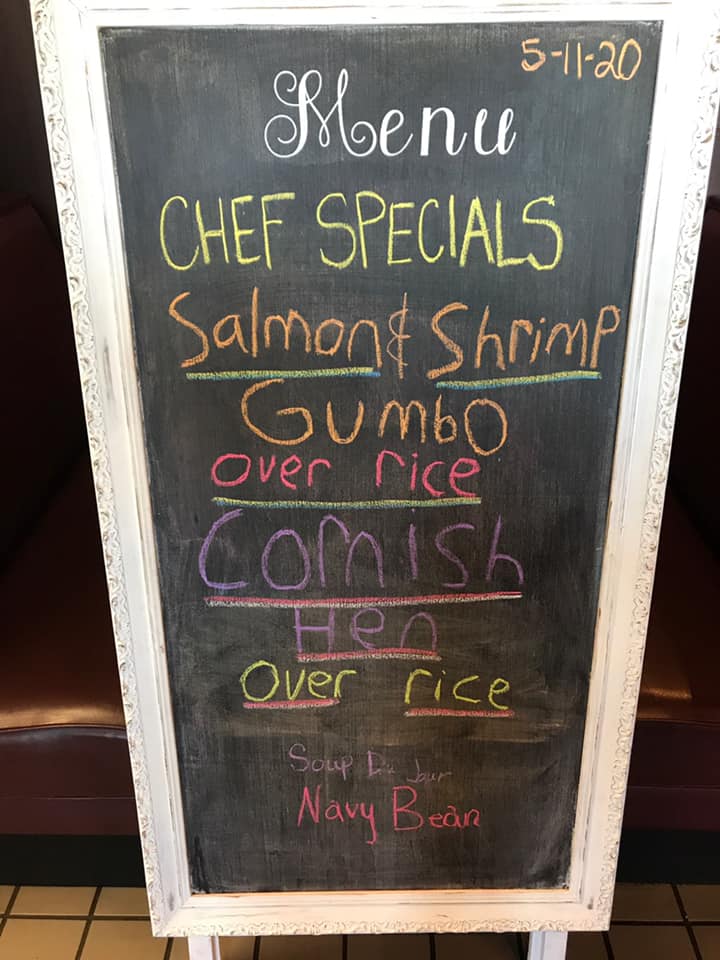 5-11-20
Menu
CHEF SPECIALS
Salmon & Shrimp
Gumbo
over rice
Cornish
Hen
Over rice
Soup Du Jour
Navy Bean